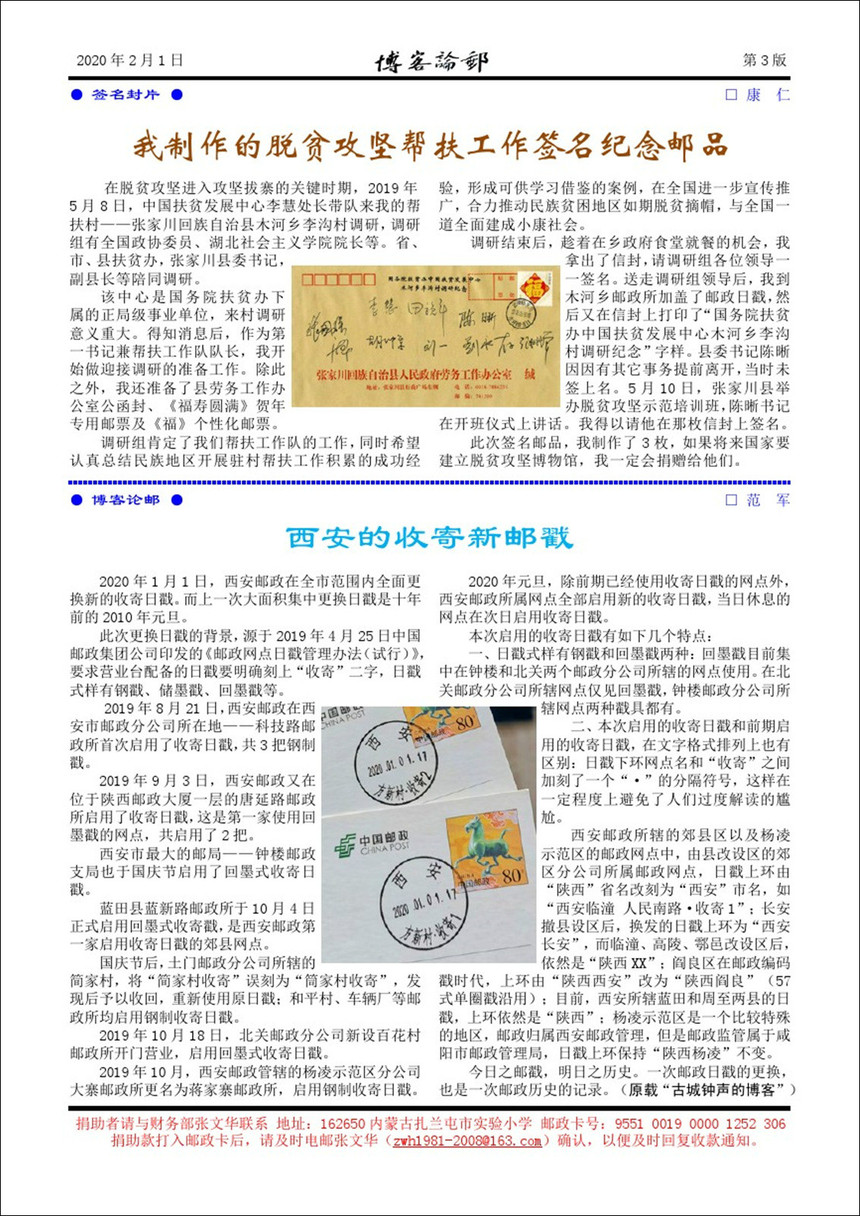 2020 年 2 月 1 日
博客論郵
第 3 版
● 签名封片 ●
□ 康 仁
我制作的脱贫攻坚帮扶工作签名纪念邮品
在脱贫攻坚进入攻坚拔寨的关键时期，2019 年
5 月 8 日，中国扶贫发展中心李慧处长带队来我的帮
扶村——张家川回族自治县木河乡李沟村调研，调研
组有全国政协委员、湖北社会主义学院院长等。省、
市、县扶贫办，张家川县委书记，
副县长等陪同调研。
该中心是国务院扶贫办下
属的正局级事业单位，来村调研
意义重大。得知消息后，作为第
一书记兼帮扶工作队队长，我开
始做迎接调研的准备工作。除此
之外，我还准备了县劳务工作办
公室公函封、《福寿圆满》贺年
专用邮票及《福》个性化邮票。
调研组肯定了我们帮扶工作队的工作，同时希望
认真总结民族地区开展驻村帮扶工作积累的成功经
验，形成可供学习借鉴的案例，在全国进一步宣传推
广，合力推动民族贫困地区如期脱贫摘帽，与全国一
道全面建成小康社会。
调研结束后，趁着在乡政府食堂就餐的机会，我
拿出了信封，请调研组各位领导一
一签名。送走调研组领导后，我到
木河乡邮政所加盖了邮政日戳，然
后又在信封上打印了“国务院扶贫
办中国扶贫发展中心木河乡李沟
村调研纪念”字样。县委书记陈晰
因因有其它事务提前离开，当时未
签上名。5 月 10 日，张家川县举
办脱贫攻坚示范培训班，陈晰书记
在开班仪式上讲话。我得以请他在那枚信封上签名。
此次签名邮品，我制作了 3 枚，如果将来国家要
建立脱贫攻坚博物馆，我一定会捐赠给他们。
国务院扶贫办中国扶贫发展中心
木河乡李沟村调研纪念
福
李慧
陈晰
刘一
张家川回族自治县人民政府劳务工作办公室 缄
● 博客论邮 ●
□ 范 军
西安的收寄新邮戳
2020 年 1 月 1 日，西安邮政在全市范围内全面更
换新的收寄日戳。而上一次大面积集中更换日戳是十年
前的 2010 年元旦。
此次更换日戳的背景，源于 2019 年 4 月 25 日中国
邮政集团公司印发的《邮政网点日戳管理办法（试行）》，
要求营业台配备的日戳要明确刻上“收寄”二字，日戳
式样有钢戳、储墨戳、回墨戳等。
2019 年 8 月 21 日，西安邮政在西
安市邮政分公司所在地——科技路邮
政所首次启用了收寄日戳，共 3 把钢制
戳。
2019 年 9 月 3 日，西安邮政又在
位于陕西邮政大厦一层的唐延路邮政
所启用了收寄日戳，这是第一家使用回
墨戳的网点，共启用了 2 把。
西安市最大的邮局——钟楼邮政
支局也于国庆节启用了回墨式收寄日
戳。
蓝田县蓝新路邮政所于 10 月 4 日
正式启用回墨式收寄戳，是西安邮政第
一家启用收寄日戳的郊县网点。
国庆节后，土门邮政分公司所辖的
简家村，将“简家村收寄”误刻为“筒家村收寄”，发
现后予以收回，重新使用原日戳；和平村、车辆厂等邮
政所均启用钢制收寄日戳。
2019 年 10 月 18 日，北关邮政分公司新设百花村
邮政所开门营业，启用回墨式收寄日戳。
2019 年 10 月，西安邮政管辖的杨凌示范区分公司
大寨邮政所更名为蒋家寨邮政所，启用钢制收寄日戳。
2020 年元旦，除前期已经使用收寄日戳的网点外，
西安邮政所属网点全部启用新的收寄日戳，当日休息的
网点在次日启用收寄日戳。
本次启用的收寄日戳有如下几个特点：
一、日戳式样有钢戳和回墨戳两种：回墨戳目前集
中在钟楼和北关两个邮政分公司所辖的网点使用。在北
关邮政分公司所辖网点仅见回墨戳，钟楼邮政分公司所
辖网点两种戳具都有。
二、本次启用的收寄日戳和前期启
用的收寄日戳，在文字格式排列上也有
区别：日戳下环网点名和“收寄”之间
加刻了一个“·”的分隔符号，这样在
一定程度上避免了人们过度解读的尴
尬。
西安邮政所辖的郊县区以及杨凌
示范区的邮政网点中，由县改设区的郊
区分公司所属邮政网点，日戳上环由
“陕西”省名改刻为“西安”市名，如
“西安临潼 人民南路·收寄 1”；长安
撤县设区后，换发的日戳上环为“西安
长安”，而临潼、高陵、鄠邑改设区后，
依然是“陕西 XX”；阎良区在邮政编码
戳时代，上环由“陕西西安”改为“陕西阎良”（57
式单圈戳沿用）；目前，西安所辖蓝田和周至两县的日
戳，上环依然是“陕西”；杨凌示范区是一个比较特殊
的地区，邮政归属西安邮政管理，但是邮政监管属于咸
阳市邮政管理局，日戳上环保持“陕西杨凌”不变。
今日之邮戳，明日之历史。一次邮政日戳的更换，
也是一次邮政历史的记录。（原载“古城钟声的博客”）
中国邮政
CHINA POST
80
西安
2020.01.01.17
方新村·收寄2
中国邮政
CHINA POST
中国邮政
80
西安
2020.01.01.17
方新村·收寄1
捐助者请与财务部张文华联系 地址：162650 内蒙古扎兰屯市实验小学 邮政卡号：9551 0019 0000 1252 306
捐助款打入邮政卡后，请及时电邮张文华（zwh1981-2008@163.com）确认，以便及时回复收款通知。